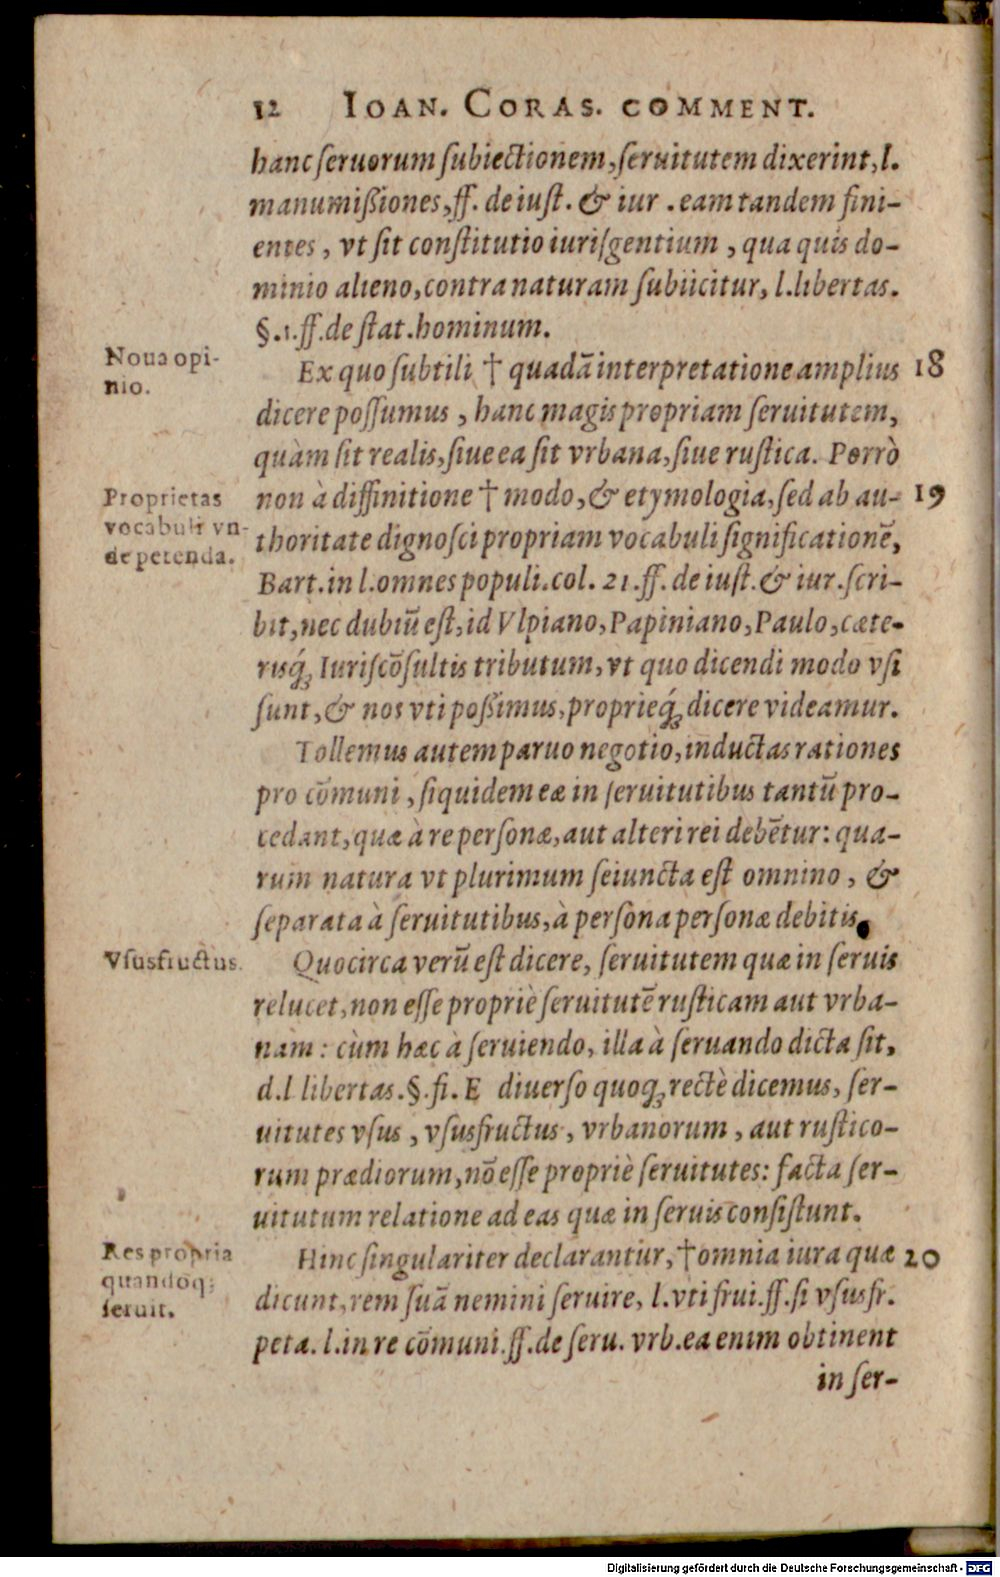 12 IOAN. CORAS. COMMENT.
hanc ſeruorum ſubiectionem, ſeruitutem dixerint, l.
manumiſsiones, ff. de iuſt. & iur. eam tandem fini-
entes, vt ſit conſtitutio iuriſgentium, qua quis do-
minio alieno, contra naturam ſubiicitur, l. libertas.
§.1. ff. de ſtat. hominum.
Noua opi-
nio.
Ex quo ſubtili † quadā interpretatione amplius 18
dicere poſſumus, hanc magis propriam ſeruitutem,
quàm ſit realis, ſiue ea ſit vrbana, ſiue ruſtica. Porrò
Proprietas
vocabuli vn-
de petenda.
non à diffinitione † modo, & etymologia, ſed ab au- 19
thoritate dignoſci propriam vocabuli ſignificationē,
Bart. in l. omnes populi. col. 21. ff. de iuſt. & iur. ſcri-
bit, nec dubiū eſt, id Vlpiano, Papiniano, Paulo, cæte-
risq́ꝫ Iuriſcōſultis tributum, vt quo dicendi modo vſi
ſunt, & nos vti poſsimus, proprieq́ꝫ dicere videamur.
Tollemus autem paruo negotio, inductas rationes
pro cōmuni, ſiquidem eæ in ſeruitutibus tantū pro-
cedant, quæ à re perſonæ, aut alteri rei debētur: qua-
rum natura vt plurimum ſeiuncta eſt omnino, &
ſeparata à ſeruitutibus, à perſona perſonæ debitis.
Vſusfructus.
Quocirca verū eſt dicere, ſeruitutem quæ in ſeruis
relucet, non eſſe propriè ſeruitutē ruſticam aut vrba-
nam: cùm hæc à ſeruiendo, illa à ſeruando dicta ſit,
d. l libertas. §. fi. E diuerſo quoqꝫ rectè dicemus, ſer-
uitutes vſus, vſusfructus, vrbanorum, aut ruſtico-
rum prædiorum, nō eſſe propriè ſeruitutes: facta ſer-
uitutum relatione ad eas quæ in ſeruis conſiſtunt.
Res propria
quandoq;
ſeruit.
Hinc ſingulariter declarantur, † omnia iura quæ 20
dicunt, rem ſuā nemini ſeruire, l. vti frui. ff. ſi vſusfr.
peta. l. in re cōmuni. ff. de ſeru. vrb. ea enim obtinent
in ſer-
Digitalisierung gefördert durch die Deutsche Forschungsgemeinschaft - DFG